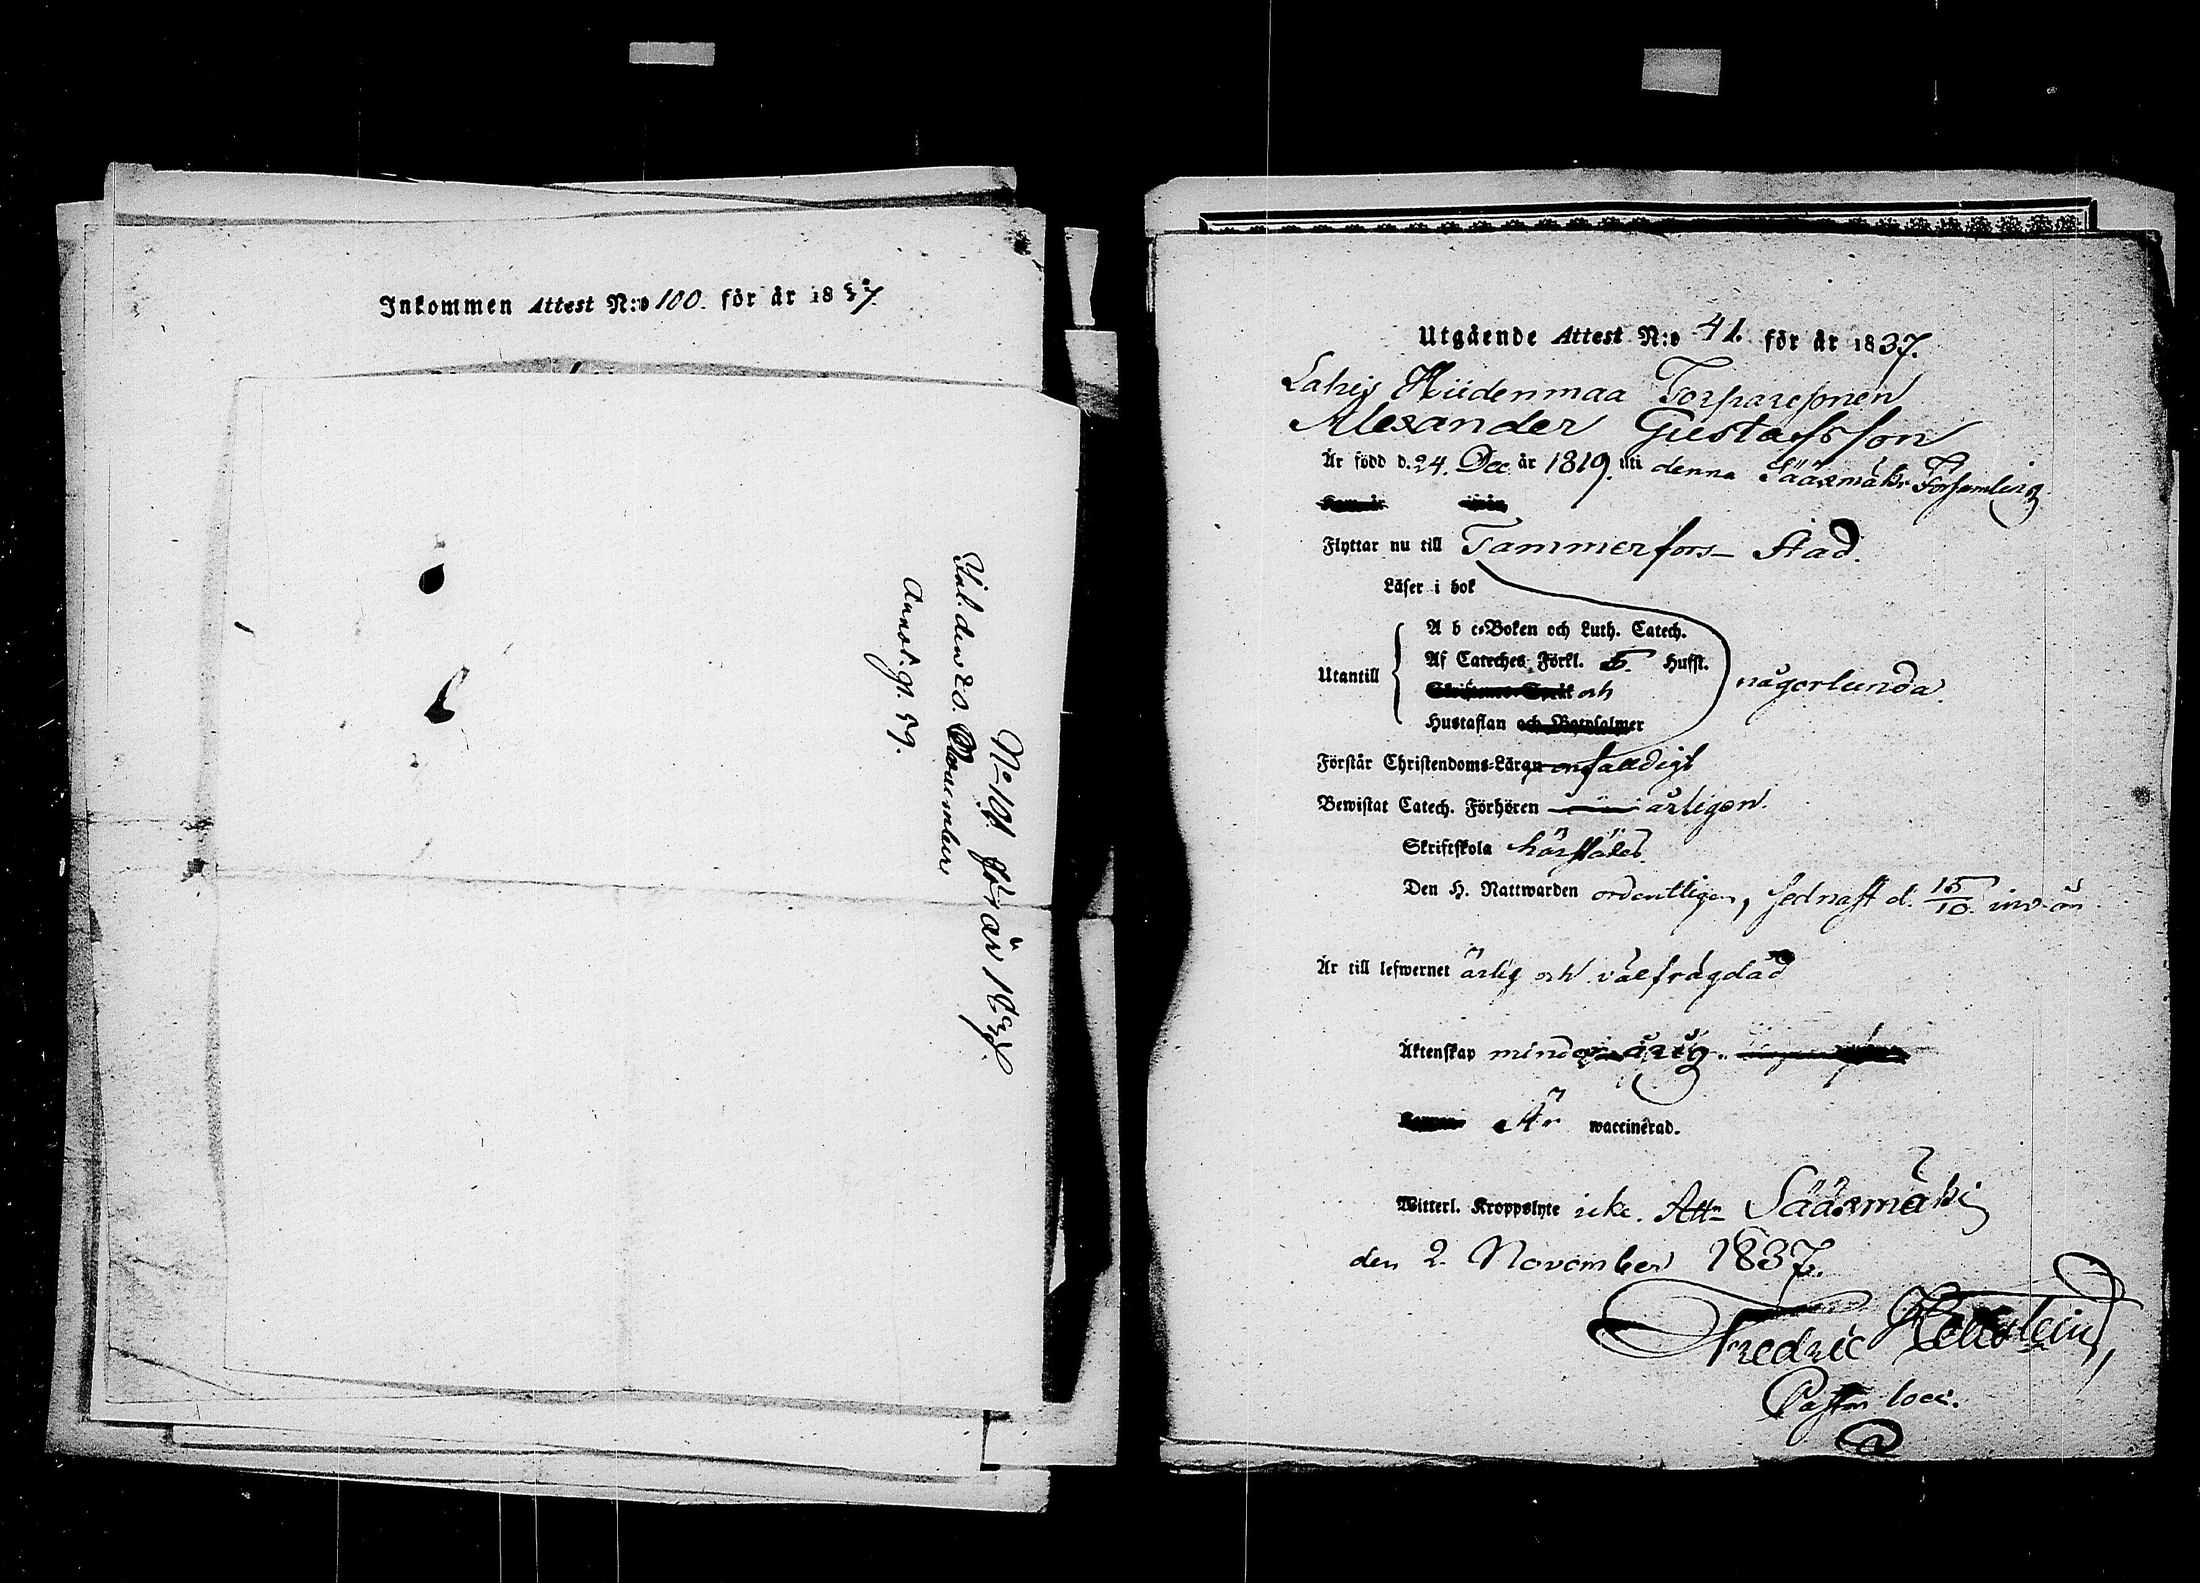 Inkommen Attest N:o 100. för år 1837.
N:o 101 för år 1837.
Inl. den 20. Novembr
Annot. p. 59.
Utgående Attest N:o 41. för år 1837.
Lahis Hiidenmaa Torparesonen
Alexander Gustafsson
Är född d. 24. Dec. år 1819. uti denna Sääxmäki Församling
Flyttar nu till Tammerfors Stad.
Läser i bok
A b c-Boken och Luth. Catech.
Af Cateches. Förkl. 5. Hufst.
Utantill någorlunda
Skriftenes Språk och
Hustaflan och Botpsalmer
Förstår Christendoms-Läran enfaldigt
Bewistat Catech. Förhören årligen.
Skriftskola härstädes
Den H. Nattwarden ordentligen, sednast d. 15/10 inv. år
Är till lefwernet ärlig och välfrägdad
Äktenskap minderårig.
Är waccinerad.
Witterl. Kroppslyte icke. Att. Sääxmäki
den 2. November 1837.
Fredric Hellstein,
Pastor loci.